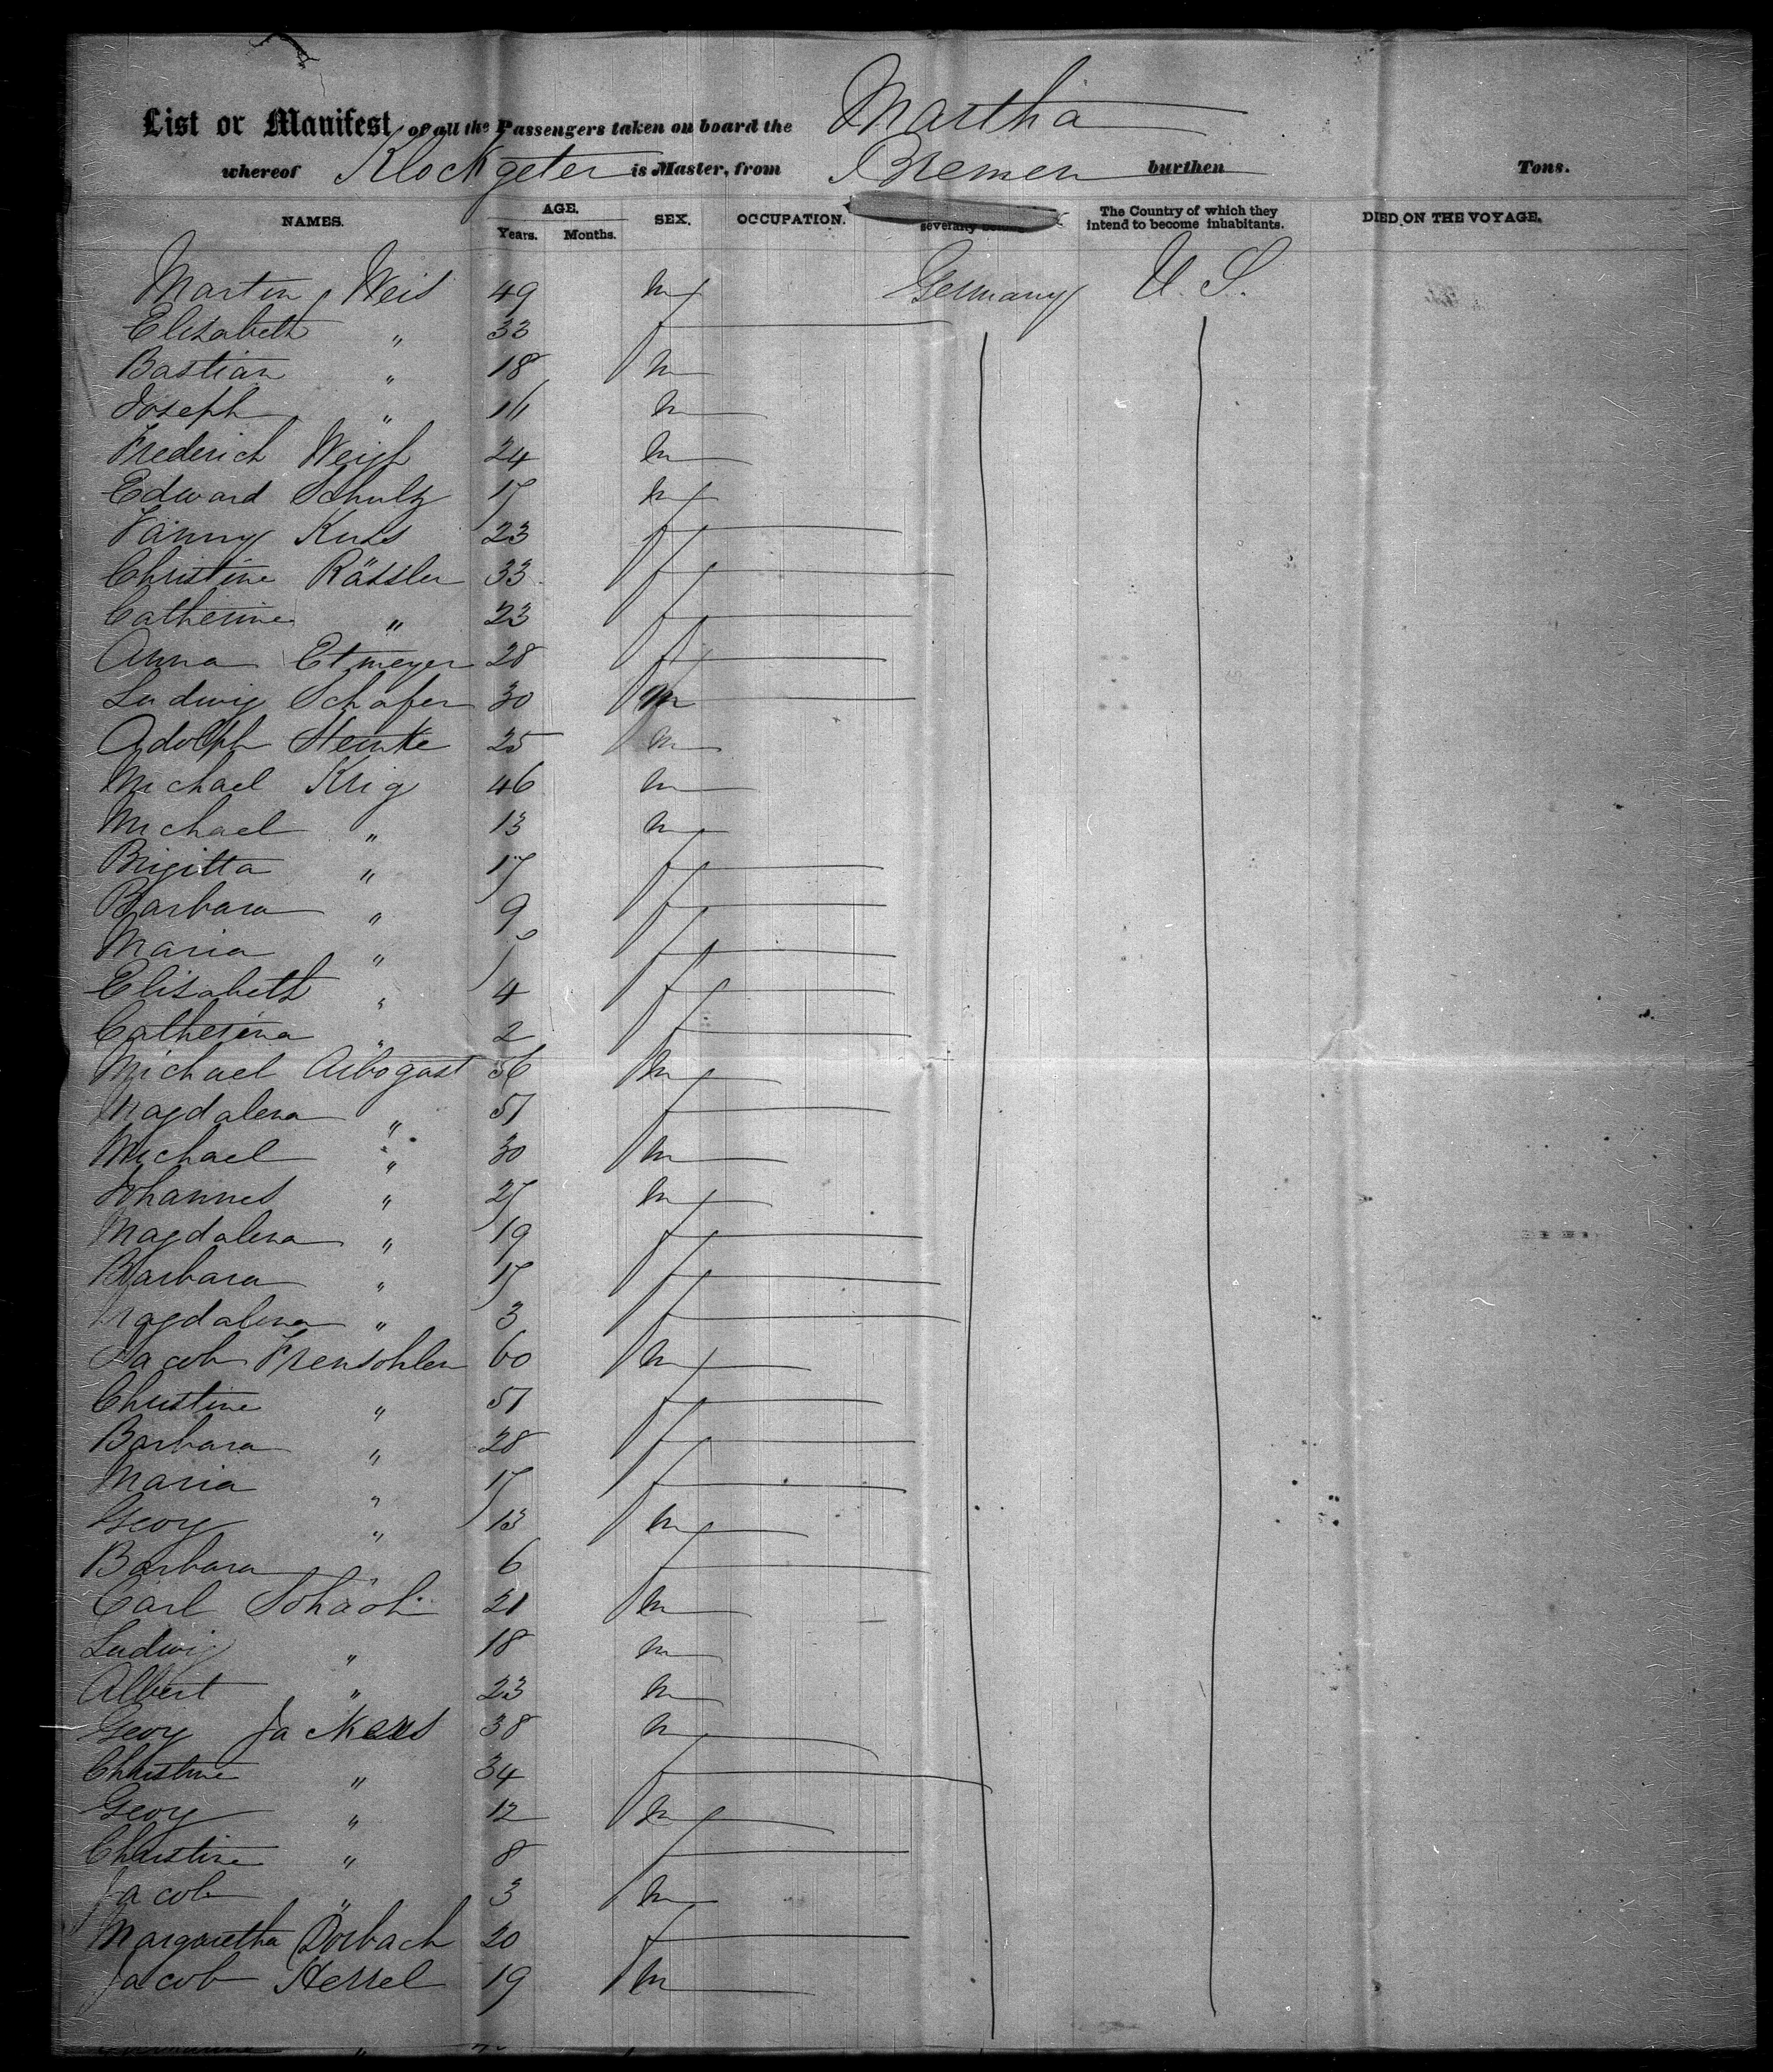 List or Manifest of all the Passengers taken on board the Martha
whereof Klockgeter is Master, from Bremen burthen Tons.
NAMES. AGE. Years. Months. SEX. OCCUPATION. severally The Country of which they intend to become inhabitants. DIED ON THE VOYAGE.
Martin Weis 49 m Germany U. S.
Elisabeth " 33 f
Bastian " 18 m
Joseph " 16 m
Frederich 24 m
Edward Schultz 17 m
Fanny 23 f
Christine Rässler 33 f
Catherine " 23 f
Anna Etmeyer 28 f
Ludwig Schäfer 30 m
Adolph 25 m
Michael Krig 46 m
Michael " 13 m
Brigitta " 17 f
Barbara " 9 f
Maria " f
Elisabeth " 4 f
Catherina " 2 f
Michael Arbogast 56 m
Magdalena " 51 f
Michael " 30 m
Johannes " 27 m
Magdalena " 19 f
Barbara " 17 f
Magdalena " 3 f
Jacob 60 m
Christine " 51 f
Barbara " 28 f
Maria " 17 f
Georg " 13 m
Barbara " 6 f
Carl 21 m
Ludwig " 18 m
Albert " 23 m
Georg 38 m
Christine " 34 f
Georg " 12 m
Christine " 8 f
Jacob " 3 m
Margaretha Dörbach 20 f
Jacob Hessel 19 m